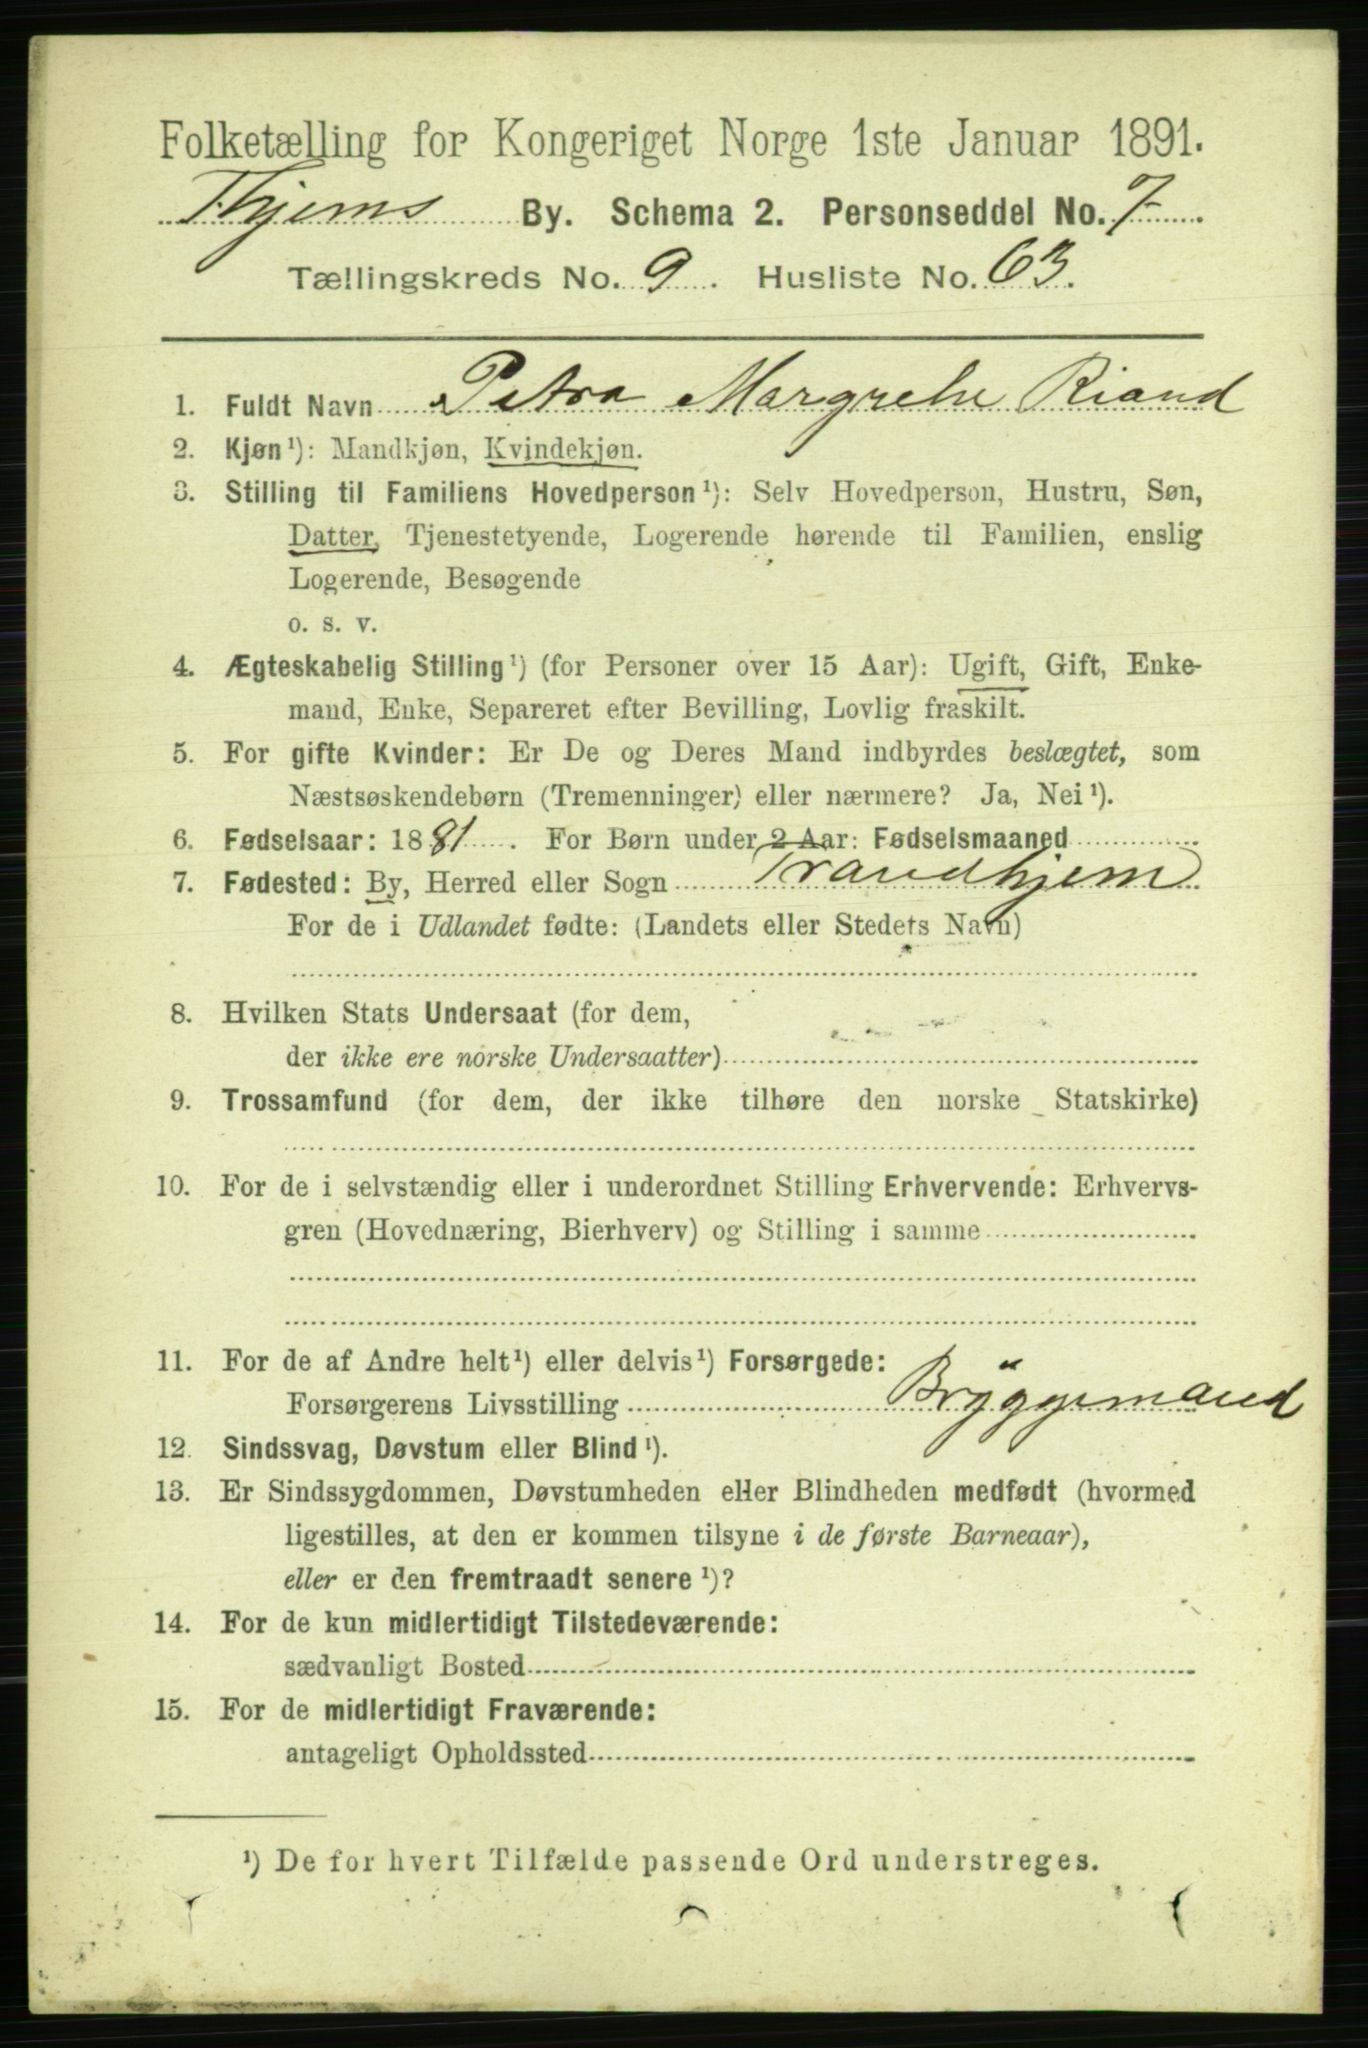 Folketælling for Kongeriget Norge 1ste Januar 1891.
Thjems By. Schema 2. Personseddel No. 7
Tællingskreds No. 9. Husliste No. 63.
1. Fuldt Navn Petra Margrethe Riand
2. Kjøn¹): Mandkjøn, Kvindekjøn.
3. Stilling til Familiens Hovedperson¹): Selv Hovedperson, Hustru, Søn,
Datter, Tjenestetyende, Logerende hørende til Familien, enslig
Logerende, Besøgende
o. s. v.
4. Ægteskabelig Stilling¹) (for Personer over 15 Aar): Ugift, Gift, Enke-
mand, Enke, Separeret efter Bevilling, Lovlig fraskilt.
5. For gifte Kvinder: Er De og Deres Mand indbyrdes beslægtet, som
Næstsøskendebørn (Tremenninger) eller nærmere? Ja, Nei¹).
6. Fødselsaar: 1881. For Børn under 2 Aar: Fødselsmaaned
7. Fødested: By, Herred eller Sogn Trandhjem
For de i Udlandet fødte: (Landets eller Stedets Navn)
8. Hvilken Stats Undersaat (for dem,
der ikke ere norske Undersaatter)
9. Trossamfund (for dem, der ikke tilhøre den norske Statskirke)
10. For de i selvstændig eller i underordnet Stilling Erhvervende: Erhvervs-
gren (Hovednæring, Bierhverv) og Stilling i samme
11. For de af Andre helt¹) eller delvis¹) Forsørgede:
Forsørgerens Livsstilling Bryggemand
12. Sindssvag, Døvstum eller Blind¹).
13. Er Sindssygdommen, Døvstumheden eller Blindheden medfødt (hvormed
ligestilles, at den er kommen tilsyne i de første Barneaar),
eller er den fremtraadt senere¹)?
14. For de kun midlertidigt Tilstedeværende:
sædvanligt Bosted
15. For de midlertidigt Fraværende:
antageligt Opholdssted
¹) De for hvert Tilfælde passende Ord understreges.